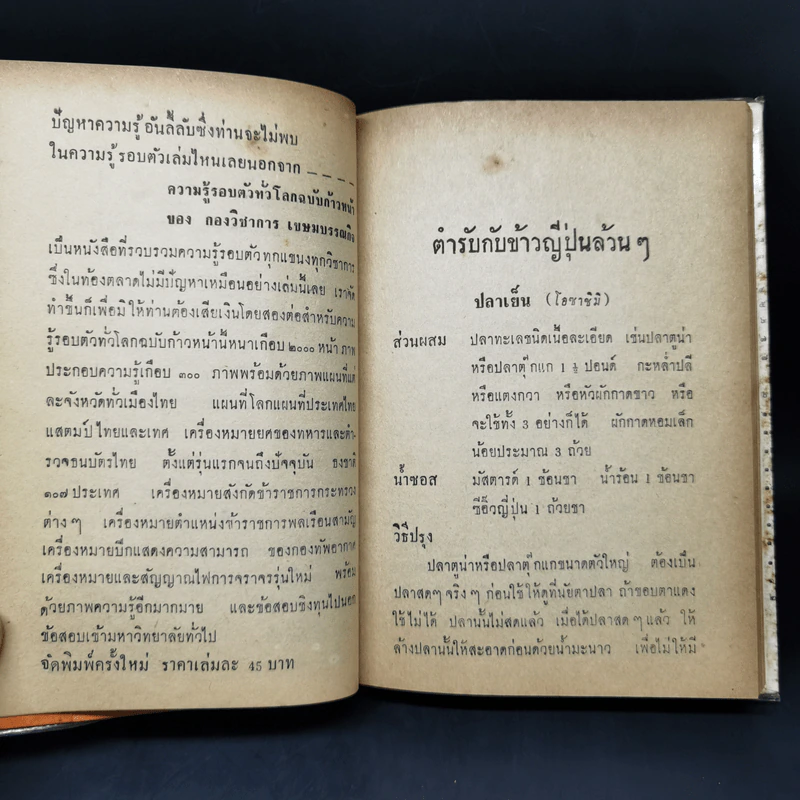 ปัญหาความรู้อันลี้ลับซึ่งท่านจะไม่พบ
ในความรู้รอบตัวเล่มไหนเลยนอกจาก _ _ _ _
ความรู้รอบตัวทั่วโลกฉบับก้าวหน้า
ของ กองวิชาการ เขษมบรรณกิจ
เป็นหนังสือที่รวบรวมความรู้รอบตัวทุกแขนงทุกวิชาการ
ซึ่งในท้องตลาดไม่มีปัญหาเหมือนอย่างเล่มนี้เลย เราจัด
ทำขึ้นก็เพื่อมิให้ท่านต้องเสียเงินโดยสองต่อสำหรับความ
รู้รอบตัวทั่วโลกฉบับก้าวหน้านี้หนาเกือบ ๒๐๐๐ หน้า ภาพ
ประกอบความรู้เกือบ ๓๐๐ ภาพพร้อมด้วยภาพแผนที่แต่
ละจังหวัดทั่วเมืองไทย แผนที่โลกแผนที่ประเทศไทย
แสตมป์ไทยและเทศ เครื่องหมายยศของทหารและตำ-
รวจธนบัตรไทย ตั้งแต่รุ่นแรกจนถึงปัจจุบัน ธงชาติ
๑๐๗ ประเทศ เครื่องหมายสังกัดข้าราชการกระทรวง
ต่างๆ เครื่องหมายตำแหน่งข้าราชการพลเรือนสามัญ
เครื่องหมายปีกแสดงความสามารถ ของกองทัพอากาศ
เครื่องหมายและสัญญาณไฟการจราจรรุ่นใหม่ พร้อม
ด้วยภาพความรู้อีกมากมาย และข้อสอบชิงทุนไปนอก
ข้อสอบเข้ามหาวิทยาลัยทั่วไป
จัดพิมพ์ครั้งใหม่ ราคาเล่มละ 45 บาท
ตำรับกับข้าวญี่ปุ่นล้วน ๆ
ปลาเย็น (โอซาชิมิ)
ส่วนผสม ปลาทะเลชนิดเนื้อละเอียด เช่นปลาตูน่า
หรือปลาตุ๊กแก 1 ½ ปอนด์ กะหล่ำปลี
หรือแตงกวา หรือหัวผักกาดขาว หรือ
จะใช้ทั้ง 3 อย่างก็ได้ ผักกาดหอมเล็ก
น้อยประมาณ 3 ถ้วย
น้ำซอส มัสตารด์ 1 ช้อนชา น้ำร้อน 1 ช้อนชา
ซีอิ๊วญี่ปุ่น 1 ถ้วยชา
วิธีปรุง
ปลาตูน่าหรือปลาตุ๊กแกขนาดตัวใหญ่ ต้องเป็น
ปลาสดๆจริงๆ ก่อนใช้ให้ดูที่นัยตาปลา ถ้าขอบตาแดง
ใช้ไม่ได้ ปลานั้นไม่สดแล้ว เมื่อได้ปลาสดๆแล้ว ให้
ล้างปลานั้นให้สะอาดก่อนด้วยน้ำมะนาว เพื่อไม่ให้มี